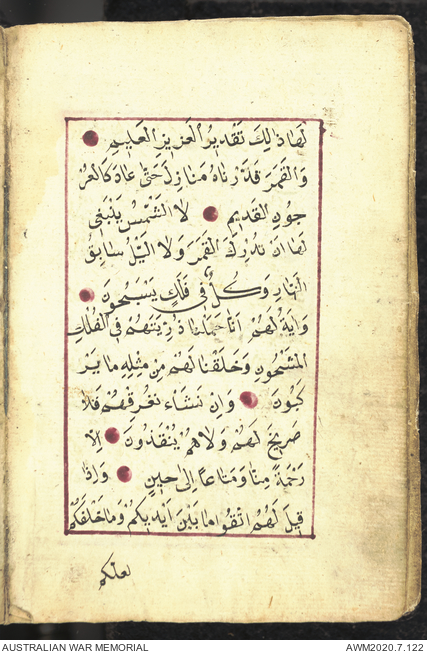 لَهَا ذٰلِكَ تَقْدِيرُ الْعَزِيزِ الْعَلِيمِ
وَالْقَمَرَ قَدَّرْنَاهُ مَنَازِلَ حَتّٰى عَادَ كَالْعُرْ
جُونِ الْقَدِيمِ لَا الشَّمْسُ يَنْبَغِى
لَهَا اَنْ تُدْرِكَ الْقَمَرَ وَلَا الَّيْلُ سَابِقُ
النَّهَارِ وَكُلٌّ فِى فَلَكٍ يَسْبَحُونَ
وَاٰيَةٌ لَهُمْ اَنَّا حَمَلْنَا ذُرِّيَّتَهُمْ فِى الْفُلْكِ
الْمَشْحُونِ وَخَلَقْنَا لَهُمْ مِنْ مِثْلِهِ مَا يَرْ
كَبُونَ وَاِنْ نَشَاْء نُغْرِقْهُمْ فَلَا
صَرِيخَ لَهُمْ وَلَا هُمْ يُنْقَذُونَ اِلَّا
رَحْمَةً مِنَّا وَمَتَاعًا اِلٰى حِينٍ وَاِذَا
قِيلَ لَهُمُ اتَّقُوا مَا بَيْنَ اَيْدِيكُمْ وَمَا خَلْفَكُمْ
لعلكم
AUSTRALIAN WAR MEMORIAL AWM2020.7.122